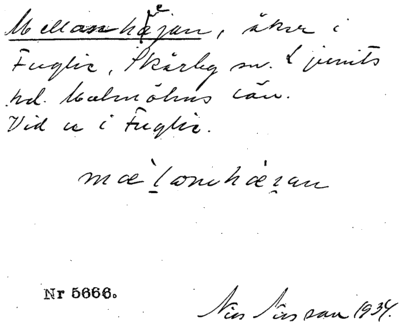 Mellanhäjan, åker i
Fuglie, Skårby sn. Ljunits
hd. Malmöhus län.
Vid u i Fuglie.
Nr 5666.
Nils Nilsson 1934.